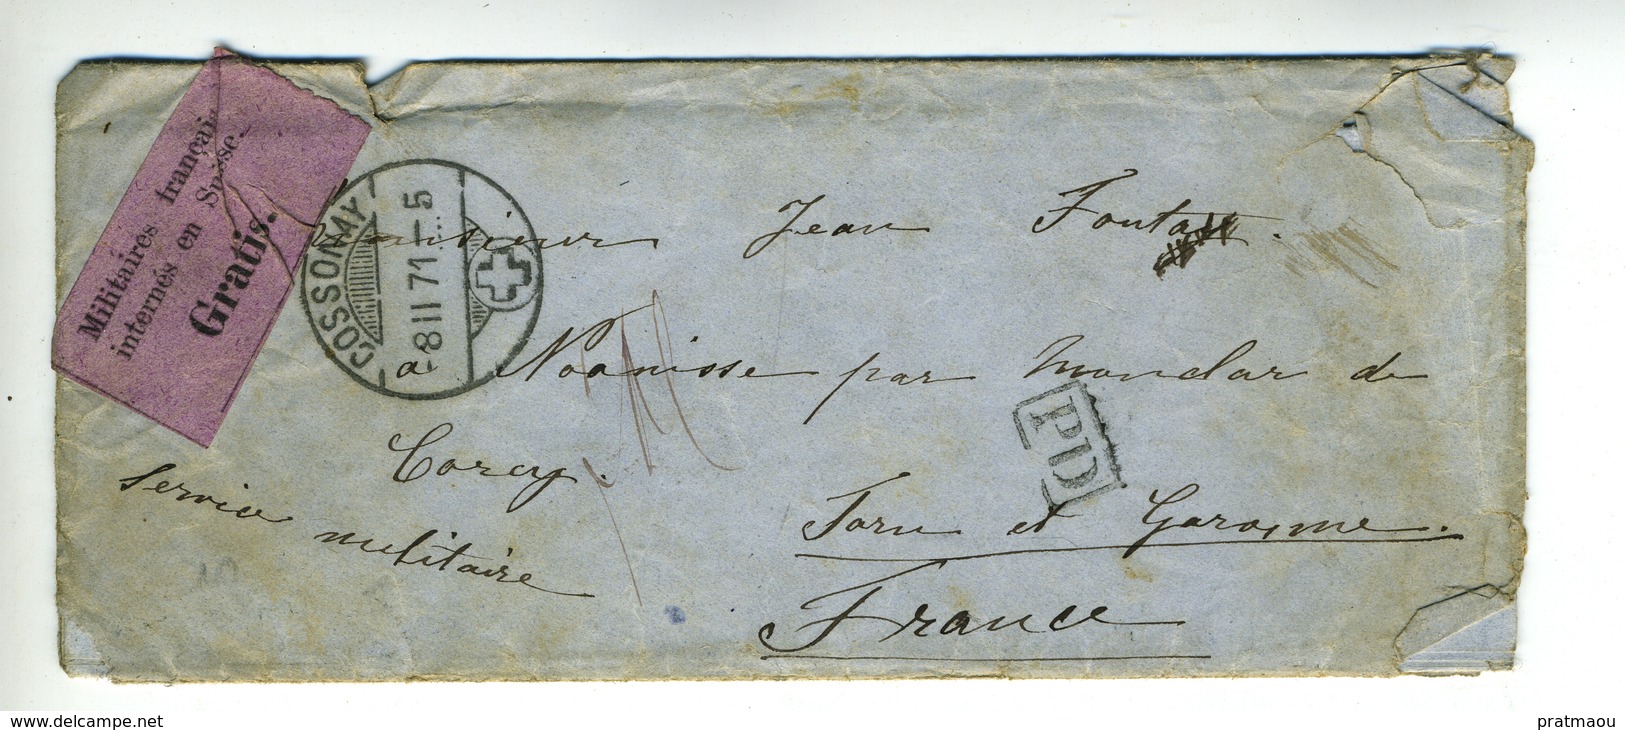 Militaires françai
internés en Suisse.
Gratis.
COSSONAY
8 II 71 - 5
Monsieur Jean Fonta
a Noanisse par Monclar de
Corcy.
Service militaire
PD
Tarn et Garonne.
France
www.delcampe.net
pratmaou